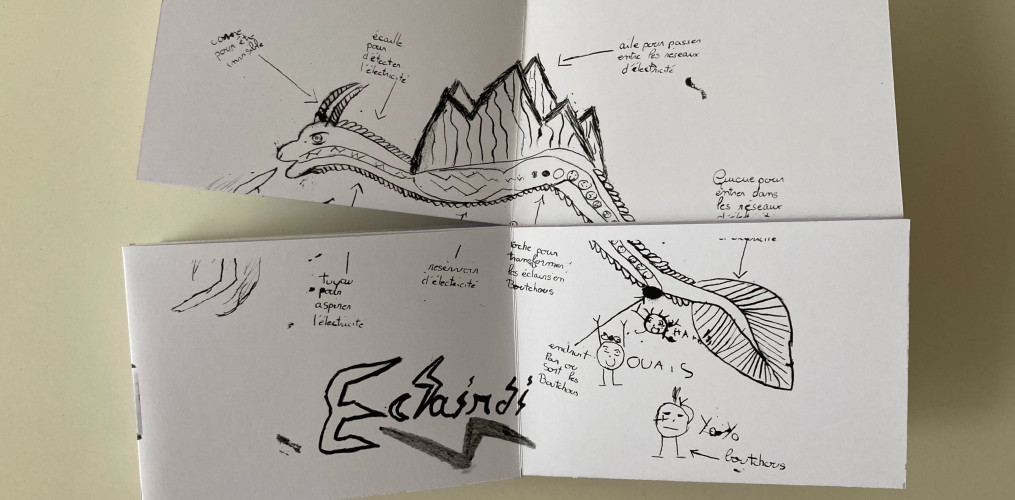 corne
pour être
invisible
écaille
pour
détecter
l'électricité
aile pour passer
entre les réseaux
d'électricité
Queue pour
entrer dans
les réseaux
tuyau
pour
aspirer
l'électricité
reservoir
d'électricité
poche pour
transformer
les éclairs en
Boutchous
endroit
Par où
sont les
Boutchous
HA
OUAIS
Yo-Yo
boutchous
Eclairdi